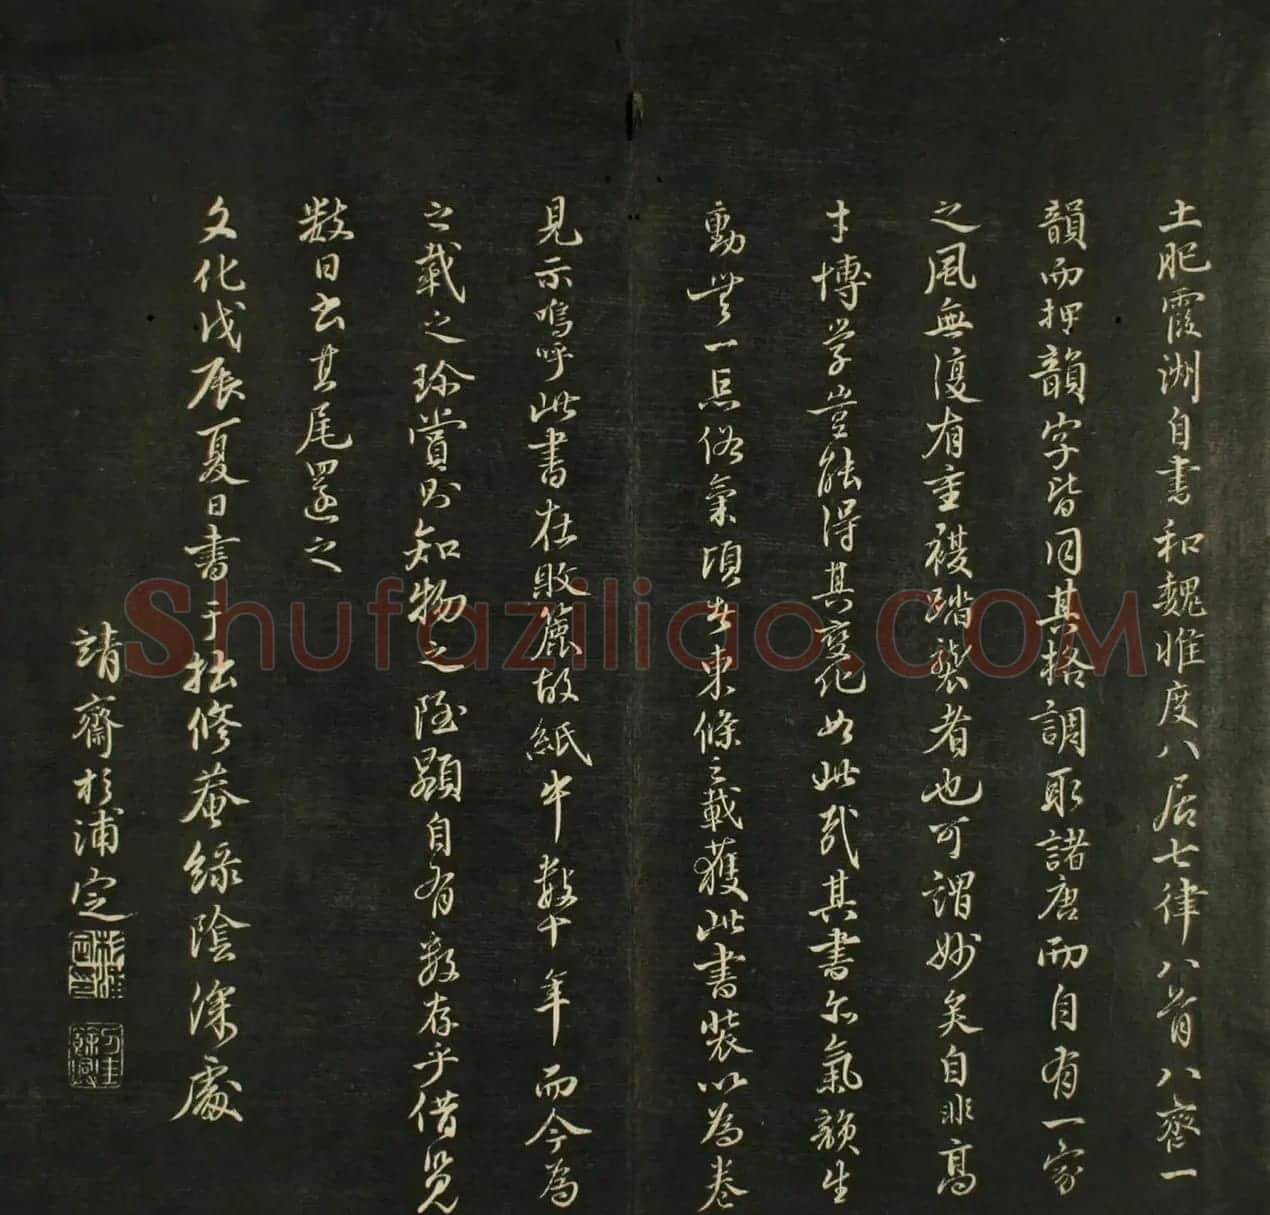 土肥霞洲自書和魏惟度八居七律八首八齊一
韻而押韻字皆同其格調取諸唐而自有一家
之風無復有重複踏襲者也可謂妙矣自非高
才博学豈能得其変化如此哉其書亦氣韻生
動無一点俗氣頃者東條之載獲此書装以為巻
見示嗚呼此書在敗簏故紙中数十年而今為
之載之珍賞則知物之隱顕自有数存乎借覧
数日書其尾還之
文化戊辰夏日書于拙修菴緑陰深處
靖齋杉浦定
Shufaziliao.COM